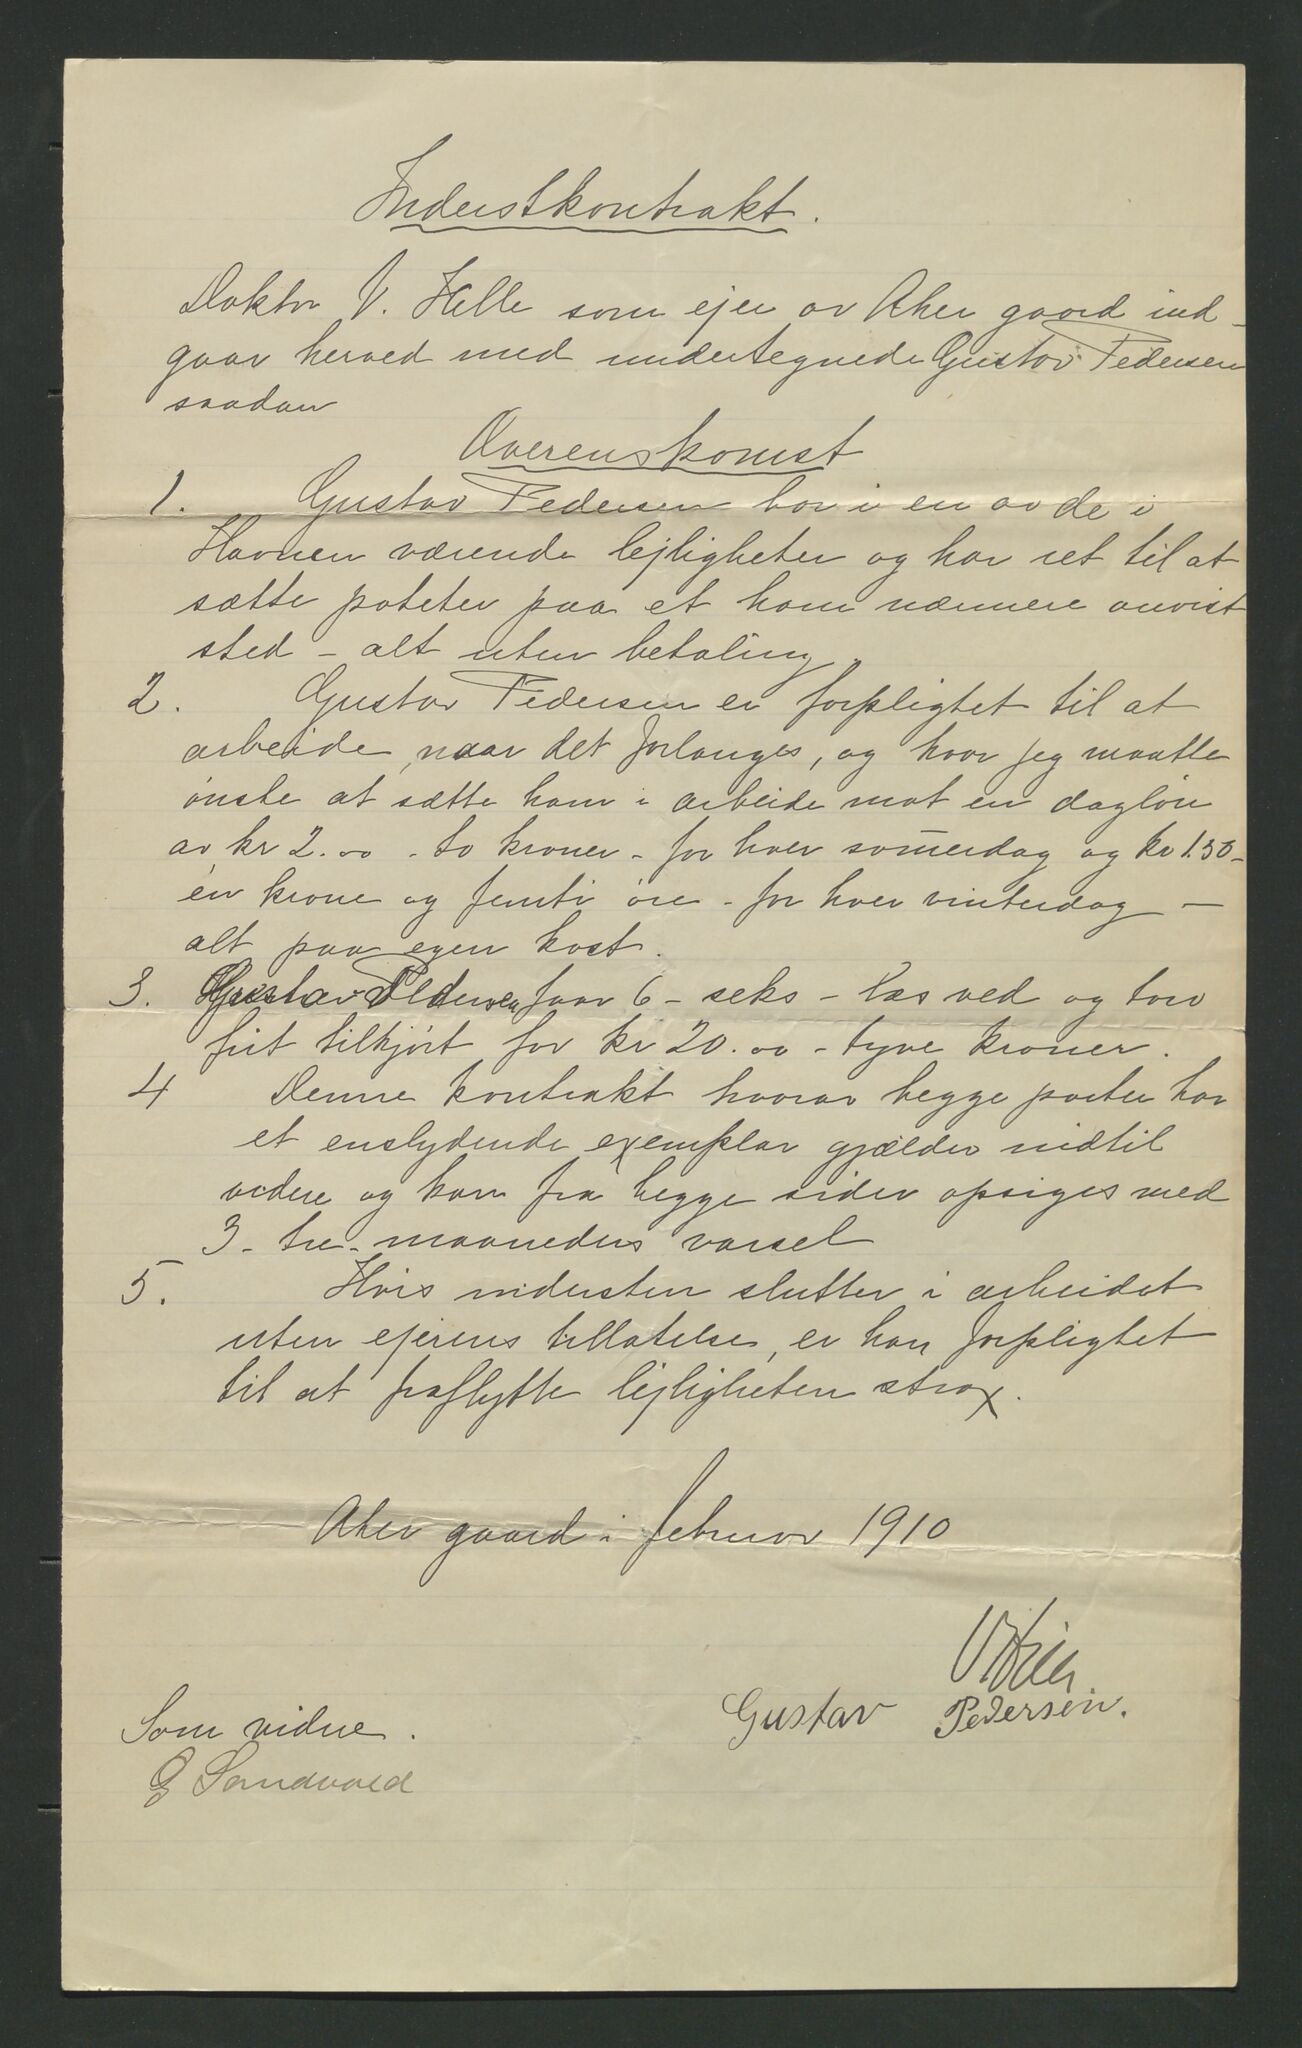 Inderstkontrakt.
Doktor V. Hille som ejer av Aker gaard ind-
gaar herved med undertegnede Gustav Pedersen
saadan
Overenskomst
1. Gustav Pedersen bor i en av de i
Havnen værende lejligheter og har ret til at
sætte poteter paa et ham nærmere anvist
sted - alt uten betaling.
2. Gustav Pedersen er forpligtet til at
arbeide, naar det forlanges, og hvor jeg maatte
ønske at sætte ham i arbeide mot en dagløn
av kr 2.00 - to kroner - for hver som̄erdag og kr 1.50 -
én krone og femti øre - for hver vinterdag -
alt paa egen kost.
3. Gustav Pedersen faar 6 - seks - læs ved og torv
frit tilkjørt for kr 20.00 - tyve kroner.
4 Denne kontrakt hvorav begge parter har
et enslydende exemplar gjælder indtil
videre og kan fra begge sider opsiges med
3 - tre - maaneders varsel
5. Hvisindersten slutter i arbeidet
uten ejerens tillatelse, er han forpligtet
til at fraflytte lejligheten strax.
Aker gaard i februar 1910
V Hille
Gustav Pedersen.
Som vidne.
G Sandvold